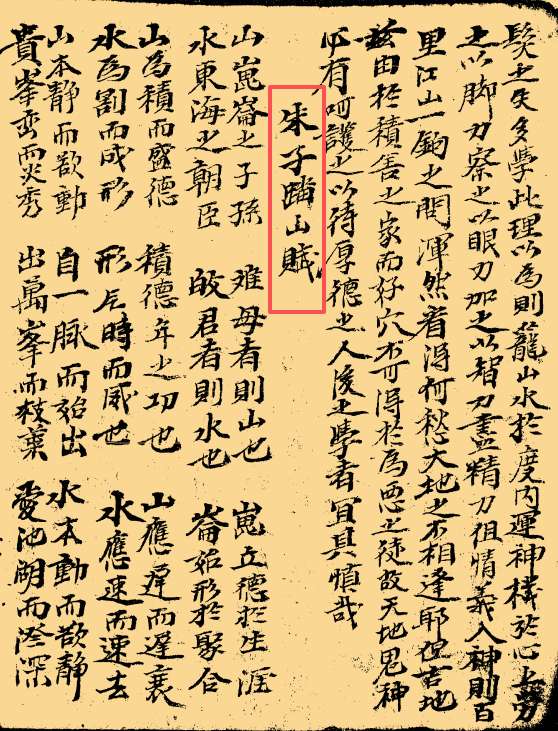 髮之失多學此理以為則蘢山水於度內運神機於心上勞
之以脚力察之以眼力加之以智力盡精力徂情義入神則百
里江山一鉤之間渾然着得何愁大地之不相逢耶但吉地
兹由於積善之家而好穴不可得於為惡之徒故天地鬼神
必有呵護之以待厚德之人後之學者宜其慎哉
朱子踏山賦
山崑崙之子孫 难母者則山也 崑立德於生涯
水東海之朝臣 放君者則水也 崙始形於聚合
山為積而盛德 積德年之功也 山應遲而遲衰
水為割而成形 形片時而威也 水應速而速去
山本静而欲動 自一脉而始出 水本動而欲静
貴峯峦而炎秀 出萬峯而枝葉 愛池湖而深